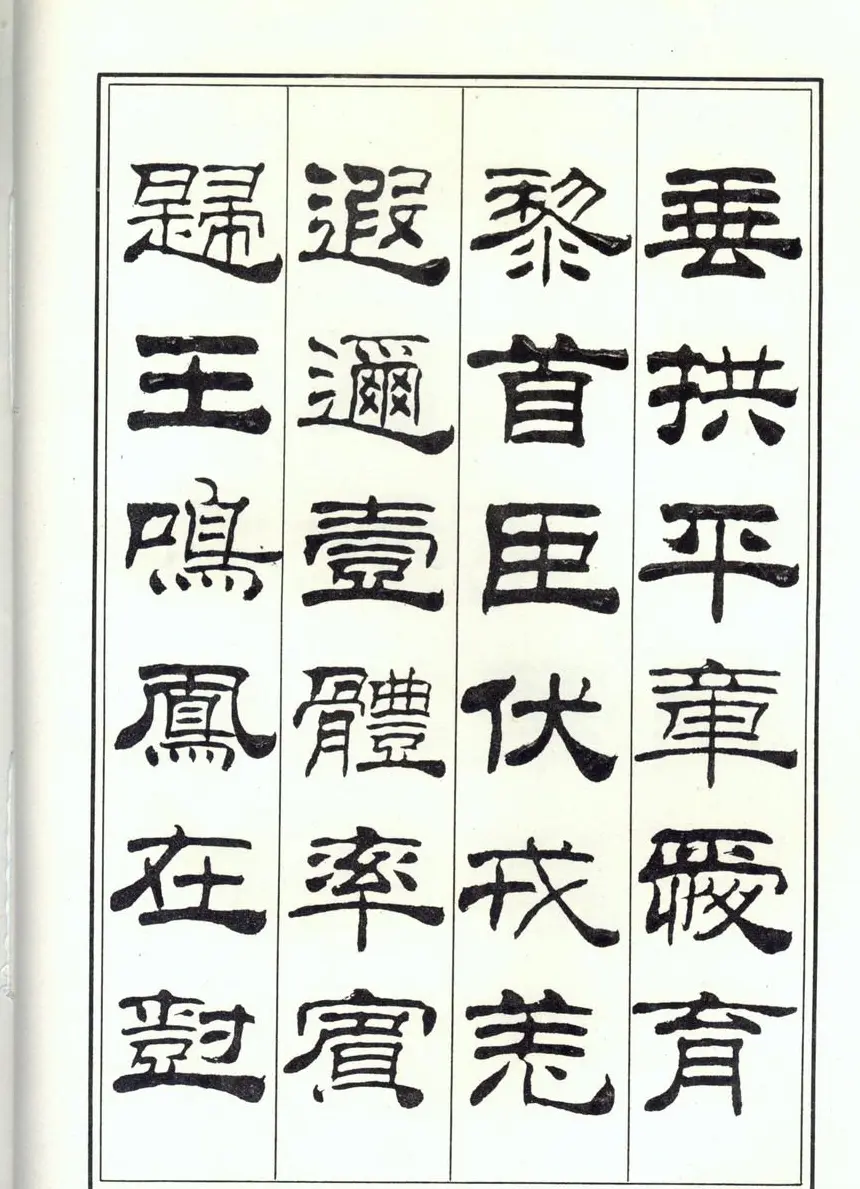 垂拱平章愛育
黎首臣伏戎羌
遐邇壹體率賓
歸王鳴鳳在樹